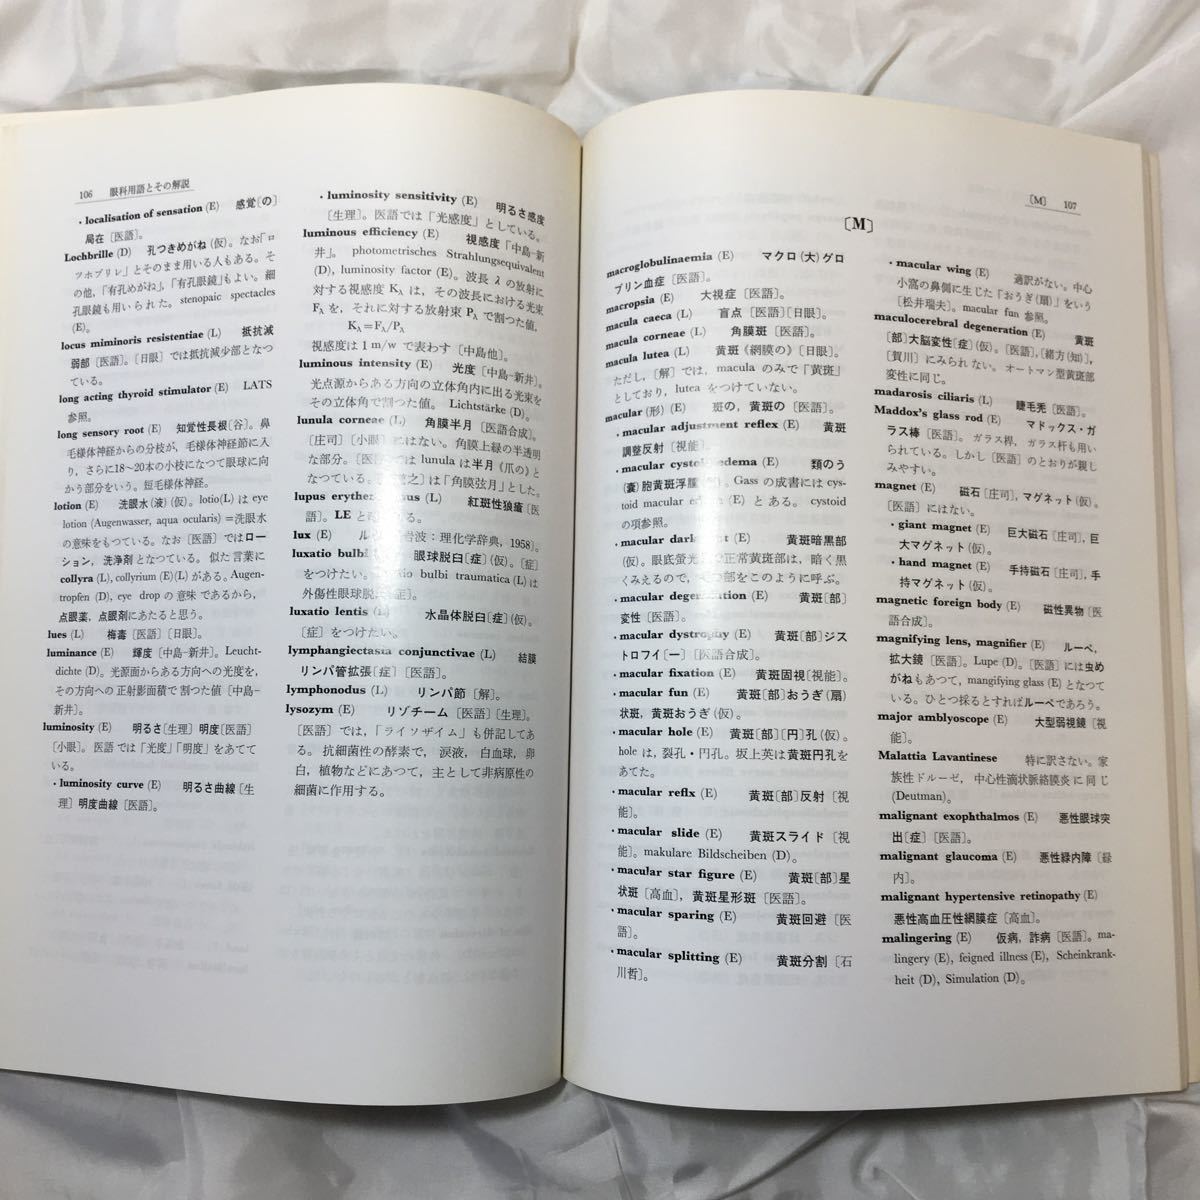 106　眼科用語とその解説
・localisation of sensation (E)　感覚〔の〕
局在〔医語〕。
Lochbrille (D)　孔つきめがね(仮)。なお「ロ
ッホブリレ」とそのまま用いる人もある。そ
の他,「有孔めがね」,「有孔眼鏡」もよい。細
孔眼鏡も用いられた。stenopaic spectacles
(E)。
locus miminoris resistentiae (L)　抵抗減
弱部〔医語〕。〔日眼〕では抵抗減少部となつ
ている。
long acting thyroid stimulator (E)　LATS
参照。
long sensory root (E)　知覚性長根〔谷〕。鼻
毛様体神経からの分枝が, 毛様体神経節に入
り, さらに18〜20本の小枝になつて眼球に向
かう部分をいう。短毛様体神経。
lotion (E)　洗眼水(液)(仮)。lotio(L) は eye
lotion (Augenwasser, aqua ocularis) =洗眼水
の意味をもつている。なお〔医語〕ではロー
ション, 洗浄剤となつている。似た言葉に
collyra (L), collyrium (E)(L) がある。Augen-
tropfen (D), eye drop の意味であるから,
点眼薬, 点眼剤にあたると思う。
lues (L)　梅毒〔医語〕〔日眼〕。
luminance (E)　輝度〔中島–新井〕。Leucht-
dichte (D)。光源面からある方向への光度を,
その方向への正射影面積で割つた値〔中島–
新井〕。
luminosity (E)　明るさ〔生理〕明度〔医語〕
〔小眼〕。医語では「光度」「明度」をあてて
いる。
・luminosity curve (E)　明るさ曲線〔生
理〕明度曲線〔医語〕。
・luminosity sensitivity (E)　明るさ感度
〔生理〕。医語では「光感度」としている。
luminous efficiency (E)　視感度「中島–新
井」。photometrisches Strahlungsequivalent
(D), luminosity factor (E)。波長 λ の放射に
対する視感度 Kλ は, その波長における光束
Fλ を, それに対する放射束 Pλ で割つた値,
Kλ=Fλ/Pλ
視感度は 1 m/w で表わす〔中島他〕。
luminous intensity (E)　光度〔中島–新井〕。
光点源からある方向の立体角内に出る光束を
その立体角で割つた値。Lichtstärke (D)。
lunula corneae (L)　角膜半月〔医語合成〕。
〔庄司〕〔小眼〕にはない。角膜上縁の半透明
な部分。〔医語〕では lunula は半月《爪の》と
なつている。之〕は「角膜弦月」とした。
lupus erythe us (L)　紅斑性狼瘡〔医
語〕。LE と る。
lux (E)　ル 岩波:理化学辞典, 1958〕。
luxatio bulbi　眼球脱臼〔症〕(仮)。〔症〕
をつけたい。 io bulbi traumatica (L) は
外傷性眼球脱 症〕。
luxatio lentis (L)　水晶体脱臼〔症〕(仮)。
〔症〕をつけたい。
lymphangiectasia conjunctivae (L)　結膜
リンパ管拡張〔症〕〔医語〕。
lymphonodus (L)　リンパ節〔解〕。
lysozym (E)　リゾチーム〔医語〕〔生理〕。
〔医語〕では,「ライソザイム」も併記してあ
る。抗細菌性の酵素で, 涙液, 白血球, 卵
白, 植物などにあつて, 主として非病原性の
細菌に作用する。
〔M〕　107
〔M〕
macroglobulinaemia (E)　マクロ(大)グロ
ブリン血症〔医語〕。
macropsia (E)　大視症〔医語〕。
macula caeca (L)　盲点〔医語〕〔日眼〕。
macula corneae (L)　角膜斑〔医語〕。
macula lutea (L)　黄斑《網膜の》〔日眼〕。
ただし,〔解〕では, macula のみで「黄斑」
としており, lutea をつけていない。
macular (形) (E)　斑の, 黄斑の〔医語〕。
・macular adjustment reflex (E)　黄斑
調整反射〔視能〕。
・macular cystoi edema (E)　類のう
(嚢)胞黄斑浮腫 。Gass の成書には cys-
toid macular e (E) とある。cystoid
の項参照。
・macular dark nt (E)　黄斑暗黒部
(仮)。眼底螢光 正常黄斑部は, 暗く黒
くみえるので, 部をこのように呼ぶ。
・macular degeneration (E)　黄斑〔部〕
変性〔医語〕。
・macular dystrophy (E)　黄斑〔部〕ジス
トロフイ〔ー〕〔医語合成〕。
・macular fixation (E)　黄斑固視〔視能〕。
・macular fun (E)　黄斑〔部〕おうぎ(扇)
状斑, 黄斑おうぎ(仮)。
・macular hole (E)　黄斑〔部〕〔円〕孔(仮)。
hole は, 裂孔・円孔。坂上英は黄斑円孔を
あてた。
・macular reflx (E)　黄斑〔部〕反射〔視
能〕。
・macular slide (E)　黄斑スライド〔視
能〕。makulare Bildscheiben (D)。
・macular star figure (E)　黄斑〔部〕星
状斑〔高血〕, 黄斑星形斑〔医語〕。
・macular sparing (E)　黄斑回避〔医
語〕。
・macular splitting (E)　黄斑分割〔石
川哲〕。
・macular wing (E)　適訳がない。中心
小窩の鼻側に生じた「おうぎ(扇)」をいう
〔松井瑞夫〕。macular fun 参照。
maculocerebral degeneration (E)　黄斑
〔部〕大脳変性〔症〕(仮)。〔医語〕,〔緒方(知)〕,
〔賀川〕にみられない。オートマン型黄斑部
変性に同じ。
madarosis ciliaris (L)　睫毛禿〔医語〕。
Maddox's glass rod (E)　マドックス・ガ
ラス棒〔医語〕。ガラス桿, ガラス杆も用い
られている。しかし〔医語〕のとおりが親し
みやすい。
magnet (E)　磁石〔庄司〕, マグネット(仮)。
〔医語〕にはない。
・giant magnet (E)　巨大磁石〔庄司〕, 巨
大マグネット(仮)。
・hand magnet (E)　手持磁石〔庄司〕, 手
持マグネット(仮)。
magnetic foreign body (E)　磁性異物〔医
語合成〕。
magnifying lens, magnifier (E)　ルーペ,
拡大鏡〔医語〕。Lupe (D)。〔医語〕には虫め
がねもあつて, mangifying glass (E) となつて
いる。ひとつ採るとすればルーペであろう。
major amblyoscope (E)　大型弱視鏡〔視
能〕。
Malattia Lavantinese　特に訳さない。家
族性ドルーゼ, 中心性滴状脈絡膜炎に同じ
(Deutman)。
malignant exophthalmos (E)　悪性眼球突
出〔症〕〔医語〕。
malignant glaucoma (E)　悪性緑内障〔緑
内〕。
malignant hypertensive retinopathy (E)
悪性高血圧性網膜症〔高血〕。
malingering (E)　仮病, 詐病〔医語〕。ma-
lingery (E), feigned illness (E), Scheinkrank-
heit (D), Simulation (D)。